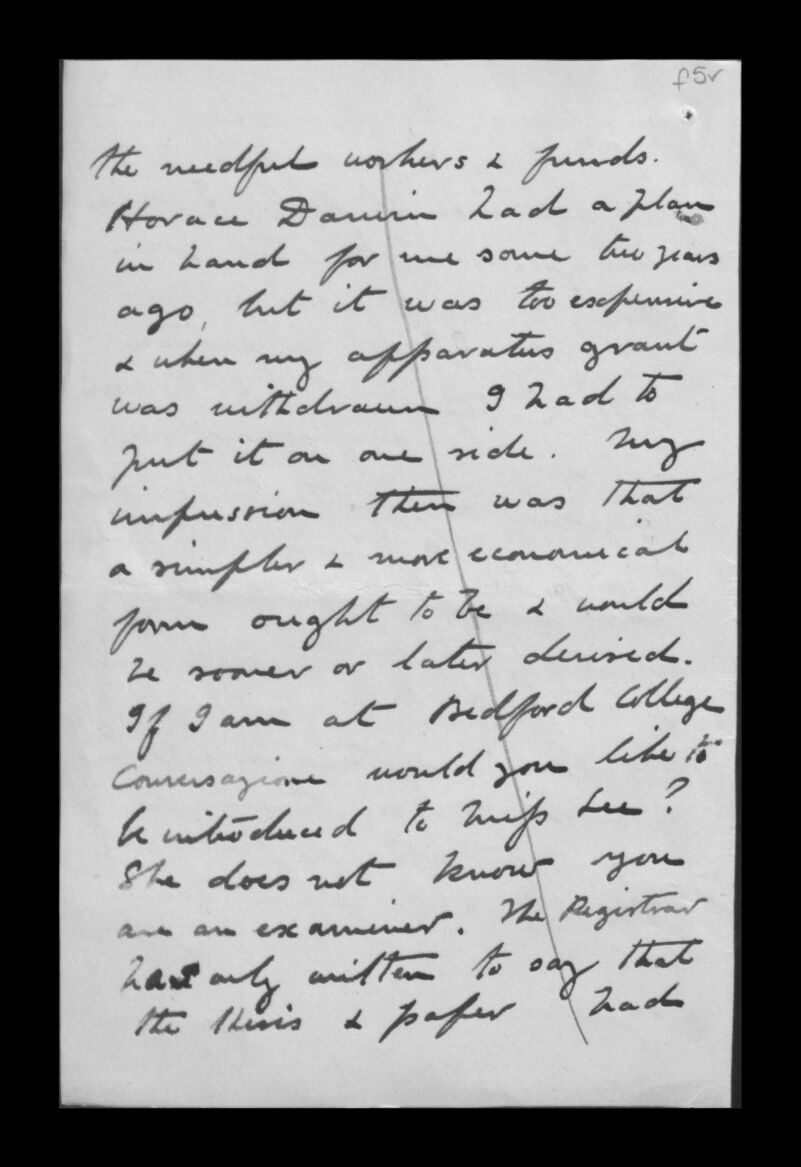 f5r
the needful workers & funds.
Horace Darwin had a plan
in hand for me some two years
ago, but it was too expensive
& when my apparatus grant
was withdrawn I had to
put it on one side. My
impression then was that
a simpler & more economical
form ought to be & would
be sooner or later devised.
If I am at Bedford College
Conversazione would you like to
be introduced to Miss Lee?
She does not know you
are an examiner. The Registrar
has only written to say that
the thesis & paper had